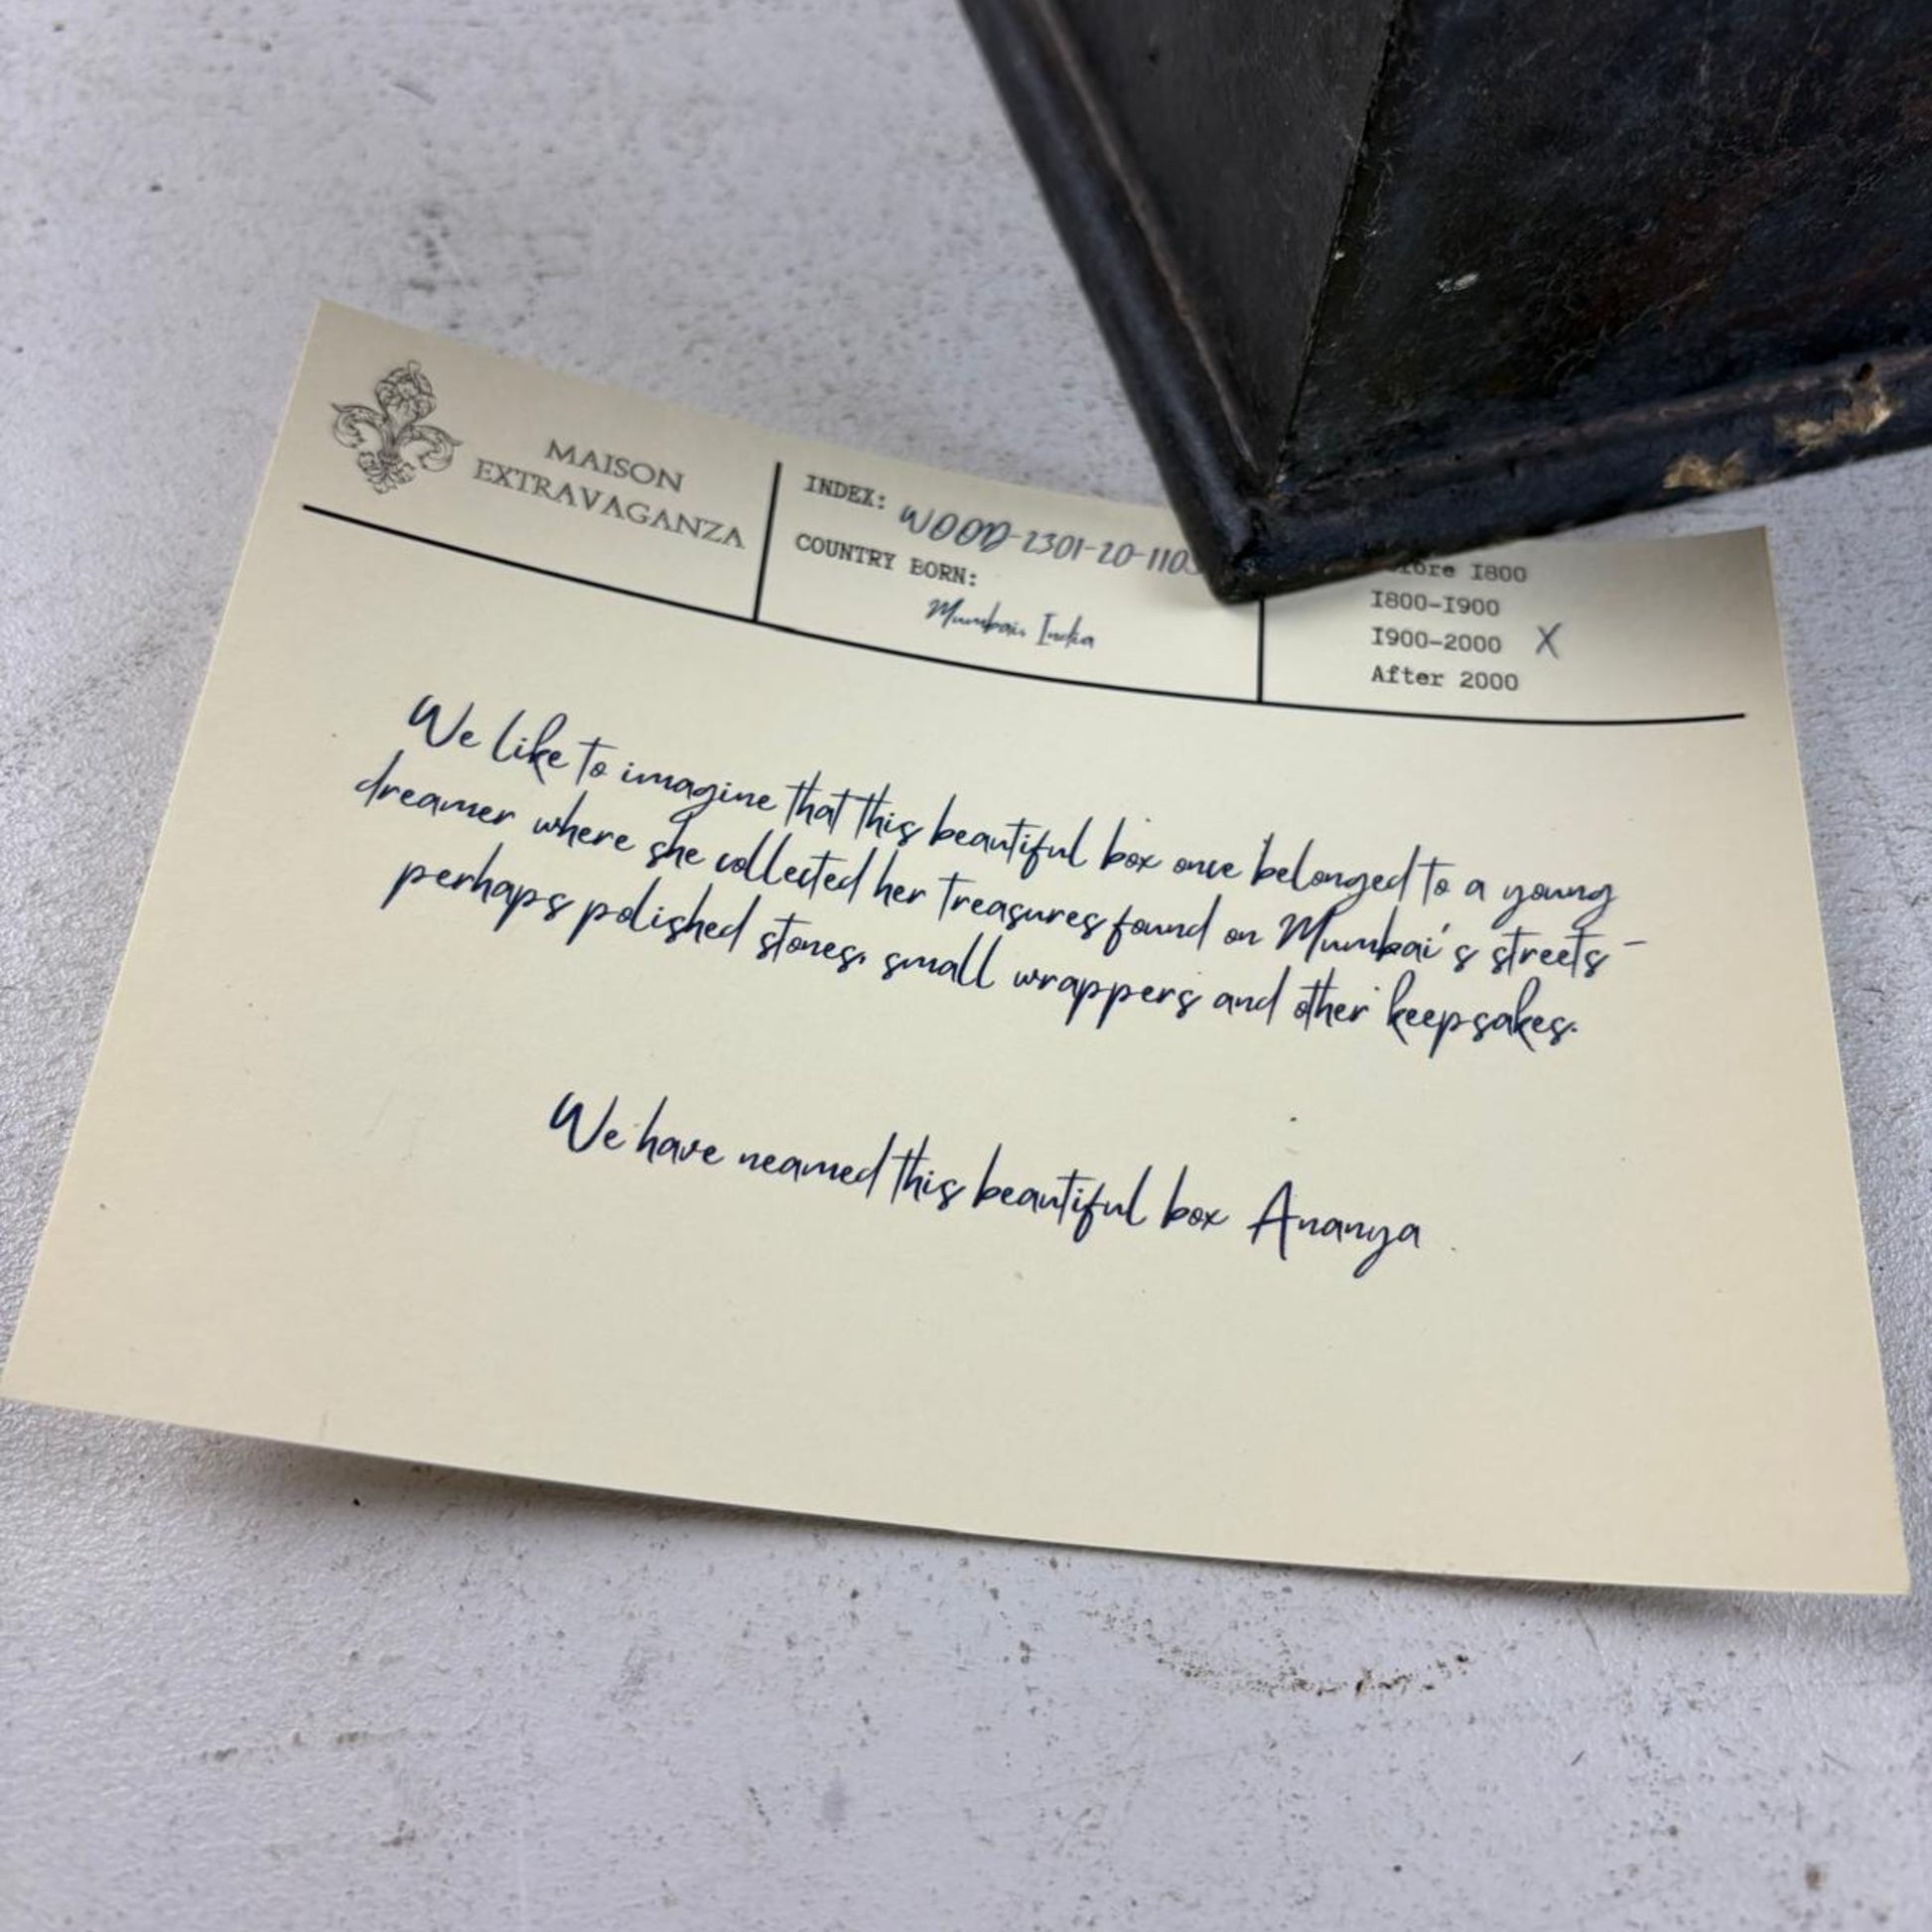 MAISON
EXTRAVAGANZA
INDEX: WOOD-2301-20-110
COUNTRY BORN:
Mumbai, India
1800
1800-1900
1900-2000 X
After 2000
We like to imagine that this beautiful box once belonged to a young
dreamer where she collected her treasures found on Mumbai's streets -
perhaps polished stones, small wrappers and other keepsakes.
We have neamed this beautiful box Ananya